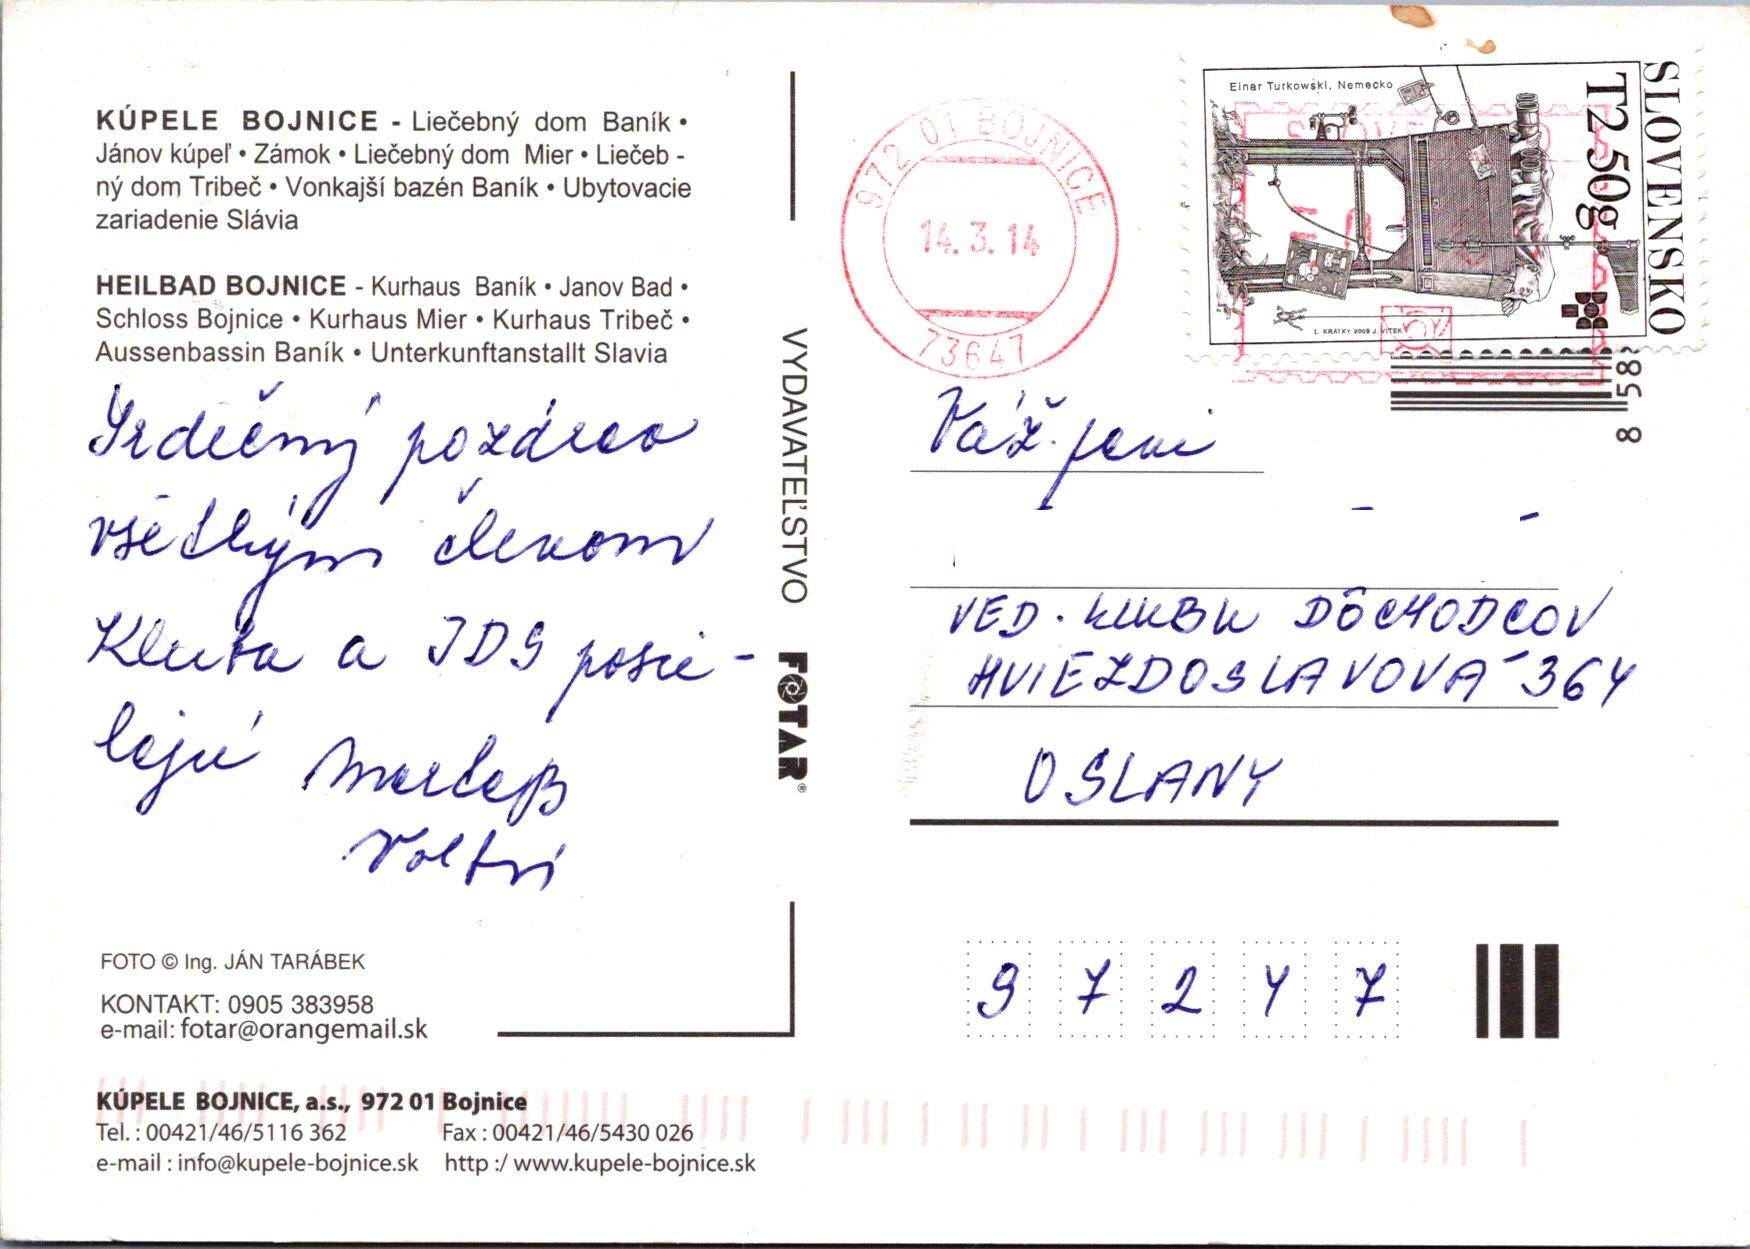 KÚPELE BOJNICE - Liečebný dom Baník •
Jánov kúpeľ • Zámok • Liečebný dom Mier • Liečeb -
ný dom Tribeč • Vonkajší bazén Baník • Ubytovacie
zariadenie Slávia
HEILBAD BOJNICE - Kurhaus Baník • Janov Bad •
Schloss Bojnice • Kurhaus Mier • Kurhaus Tribeč •
Aussenbassin Baník • Unterkunftanstallt Slavia
Srdečný pozdrav
všetkým členom
Klubu a JDS posie -
lajú
FOTO © Ing. JÁN TARÁBEK
KONTAKT: 0905 383958
e-mail: fotar@orangemail.sk
KÚPELE BOJNICE, a.s., 972 01 Bojnice
Tel. : 00421/46/5116 362 Fax : 00421/46/5430 026
e-mail : info@kupele-bojnice.sk http :/ www.kupele-bojnice.sk
VYDAVATEĽSTVO FOTAR®
972 01 BOJNICE
14. 3. 14
73647
Einar Turkowski, Nemecko
SLOVENSKO
T2 50g
Ľ. KRÁTKY 2009 J. VITEK
858
8
Váž. pani
VED. KLUBU DÔCHODCOV
HVIEZDOSLAVOVÁ 364
OSLANY
97247